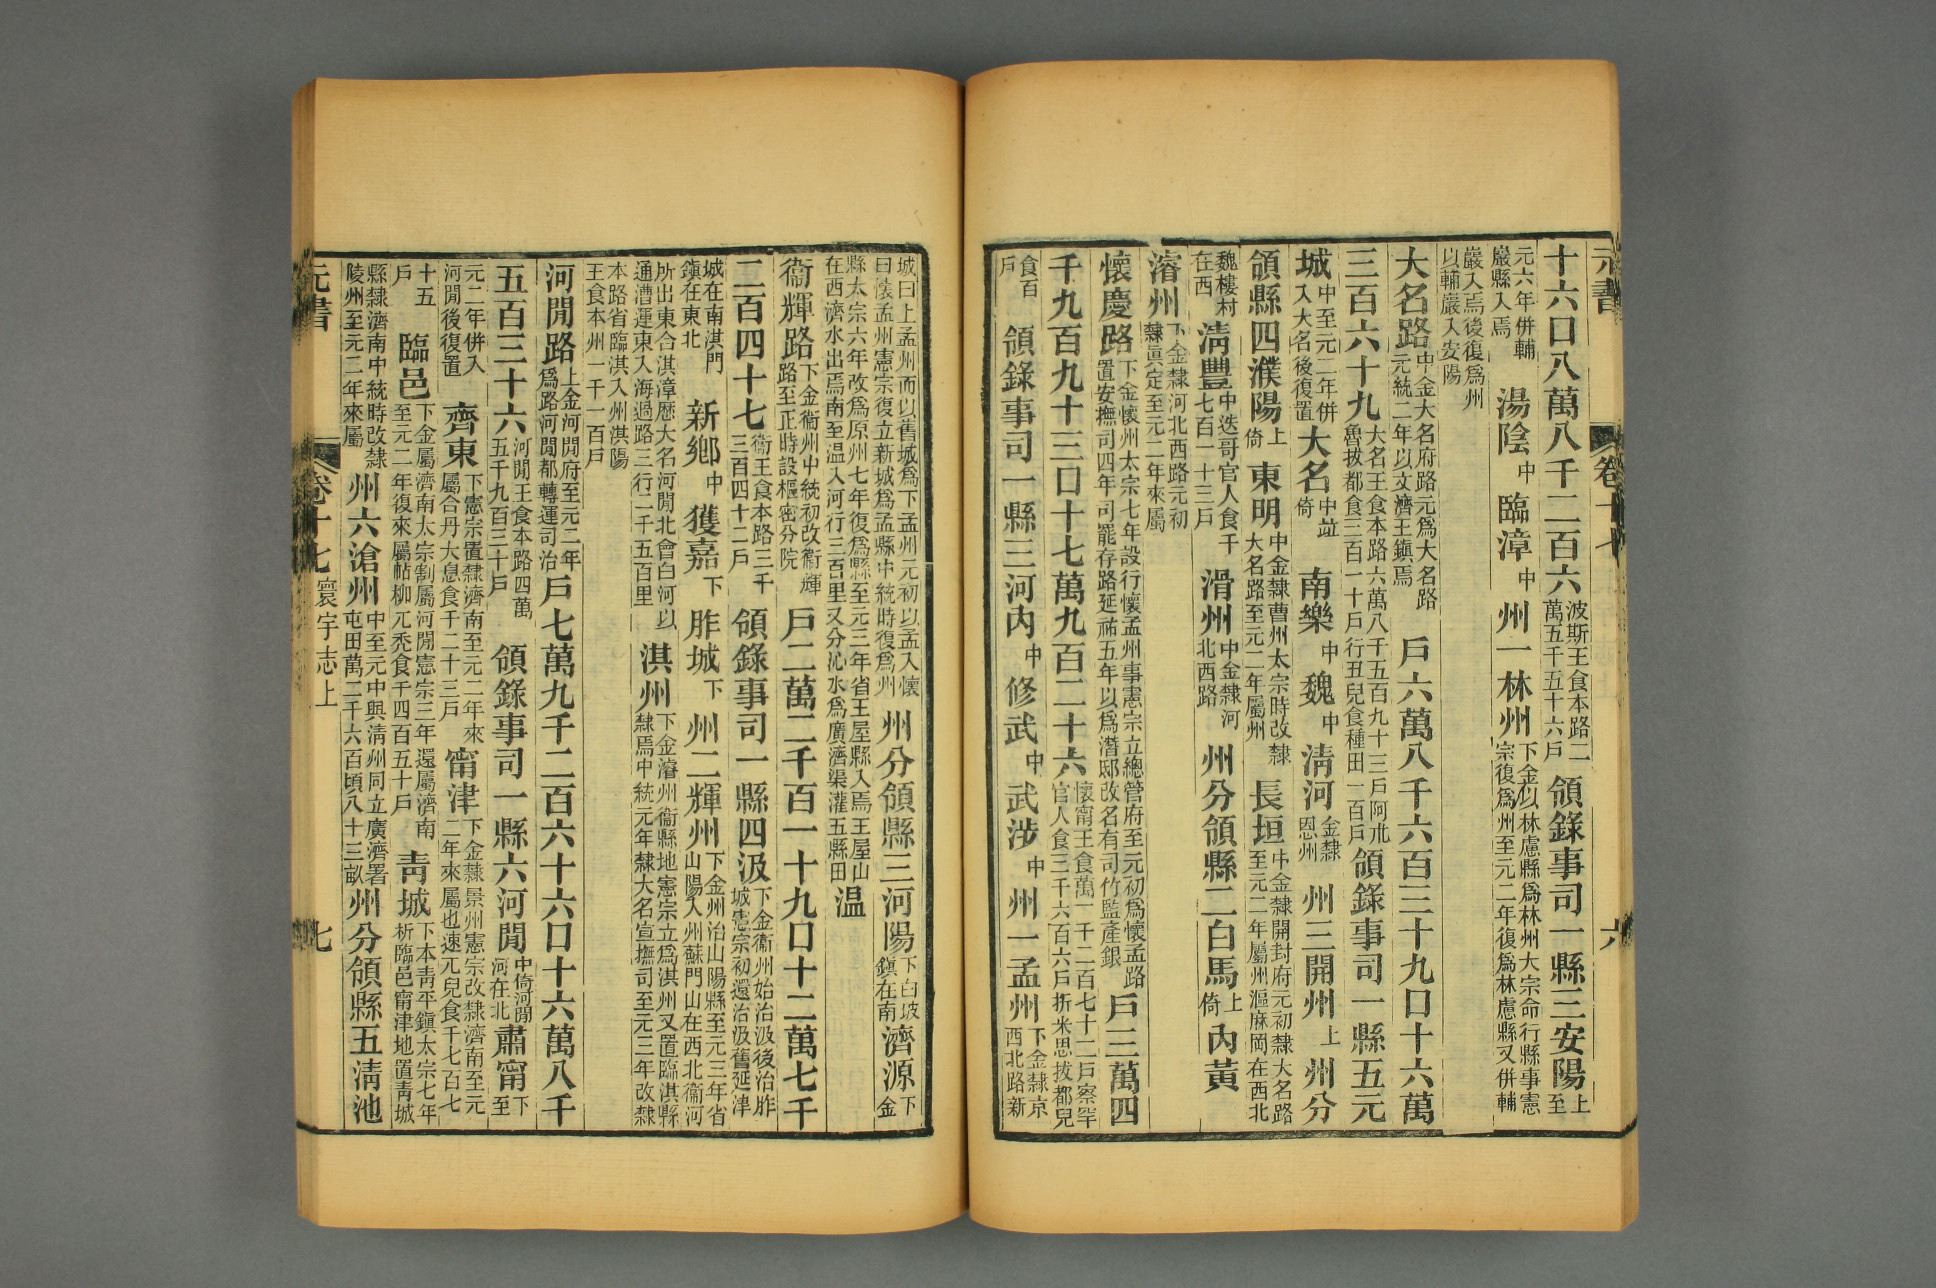 元書 卷十七 六
十六口八萬八千二百六波斯王食本路二萬五千五十六戶領錄事司一縣三安陽上至
元六年併輔巖縣入焉湯陰中臨漳中州一林州下金以林慮縣爲林州太宗命行縣事憲宗復爲州至元二年復爲林慮縣又併輔
巖入焉後復爲州以輔巖入安陽
大名路中金大名府路元爲大名路元統二年以文濟王鎮焉戶六萬八千六百三十九口十六萬
三百六十九大名王食本路六萬八千五百九十三戶阿朮魯拔都食三百一十戶行丑兒食種田一百戶領錄事司一縣五元
城中至元二年併入大名後復置大名中竝倚南樂中魏中清河金隸恩州州三開州上州分
領縣四濮陽上倚東明中金隸曹州太宗時改隸大名路至元二年屬州長垣中金隸開封府元初隸大名路至元二年屬州漚麻岡在西北
魏樓村在西清豐中迭哥官人食千七百一十三戶滑州中金隸河北西路州分領縣二白馬上倚內黃
濬州下金隸河北西路元初隸眞定至元二年來屬
懷慶路下金懷州太宗七年設行懷孟州事憲宗立總管府至元初爲懷孟路置安撫司四年司罷存路延祐五年以爲潛邸改名有司竹監產銀戶三萬四
千九百九十三口十七萬九百二十六懷甯王食萬一千二百七十二戶察罕官人食三千六百六戶折米思拔都兒
食百戶領錄事司一縣三河內中修武中武涉中州一孟州下金隸京西北路新
城曰上孟州而以舊城爲下孟州元初以孟入懷曰懷孟州憲宗復立新城爲孟縣中統時復爲州州分領縣三河陽下白坡鎮在南濟源下金
縣太宗六年改爲原州七年復爲縣至元三年省王屋縣入焉王屋山在西濟水出焉南至温入河行三百里又分沁水爲廣濟渠灌五縣田温
衞輝路下金衞州中統初改衞輝路至正時設樞密分院戶二萬二千百一十九口十二萬七千
二百四十七衞王食本路三千三百四十二戶領錄事司一縣四汲下金衞州始治汲後治胙城憲宗初還治汲舊延津
城在南淇門鎮在東北新鄉中獲嘉下胙城下州二輝州下金州治山陽縣至元三年省山陽入州蘇門山在西北衞河
所出東合淇漳歷大名河閒北會白河以通漕運東入海過路三行二千五百里淇州下金濬州衞縣地憲宗立爲淇州又置臨淇縣隸焉中統元年隸大名宣撫司至元三年改隸
本路省臨淇入州淇陽王食本州一千一百戶
河閒路上金河閒府至元二年爲路河閒都轉運司治戶七萬九千二百六十六口十六萬八千
五百三十六河閒王食本路四萬五千九百三十戶領錄事司一縣六河閒中倚河閒河在北肅甯下至
元二年併入河閒後復置齊東下憲宗置隸濟南至元二年來屬合丹大息食千二十三戶甯津下金隸景州憲宗改隸濟南至元二年來屬也速兀兒食千七百七
十五戶臨邑下金屬濟南太宗割屬河閒憲宗三年還屬濟南至元二年復來屬帖柳兀禿食千四百五十戶靑城下本靑平鎮太宗七年析臨邑甯津地置靑城
縣隸濟南中統時改隸陵州至元二年來屬州六滄州中至元中與清州同立廣濟署屯田萬二千六百頃八十三畝州分領縣五淸池
元書 卷十七 寰宇志上 七